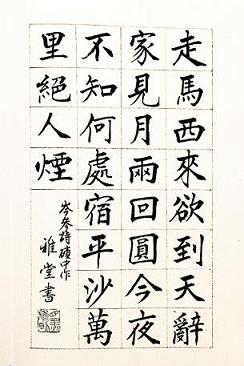 走馬西來欲到天辭
家見月兩回圓今夜
不知何處宿平沙萬
里絕人煙
岑參詩磧中作
雅堂書